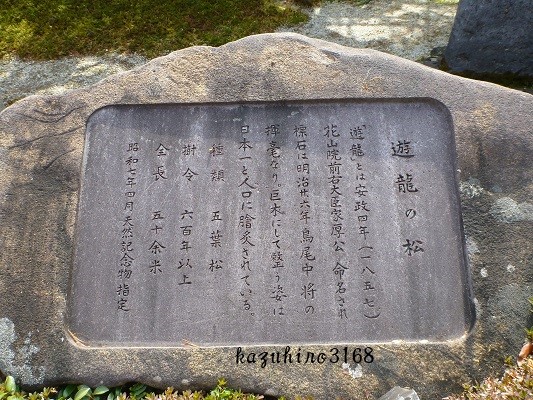 遊龍の松
「遊龍とは安政四年(一八五七)
花山院前右大臣家厚公命名され
標石は明治廿六年鳥尾中将の
揮毫なり。巨木にして整う姿は
日本一と人口に膾炙されている。
種類 五葉松
樹令 六百年以上
全長 五十余米
昭和七年四月天然記念物指定
kazuhino3168